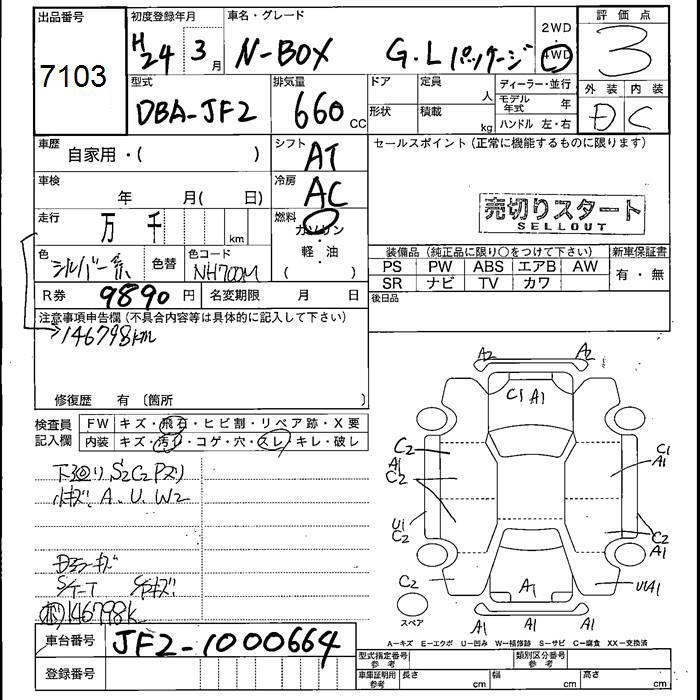 出品番号
7103
初度登録年月
H24 3月
車名・グレード
N-BOX G・Lパッケージ
2WD
4WD
評価点
3
外装 内装
D C
型式
DBA-JF2
排気量
660 CC
ドア
形状
定員
人
積載
kg
ディーラー・並行
モデル年式 年
ハンドル 左・右
車歴
自家用・( )
シフト
AT
セールスポイント(正常に機能するものに限ります)
売切りスタート
SELLOUT
車検
年 月( 日)
冷房
AC
走行
万 千 km
燃料
ガソリン
軽・油
( )
色
シルバー系
色替
色コード
NH700M
装備品(純正品に限り○をつけて下さい)
PS PW ABS エアB AW
SR ナビ TV カワ
新車保証書
有・無
R券
9890円
名変期限 月 日
後日品
注意事項申告欄(不具合内容等は具体的に記入して下さい)
146798km
修復歴 有〔箇所 〕
検査員
記入欄
FW キズ・飛石・ヒビ割・リペア跡・X要
内装 キズ・汚れ・コゲ・穴・スレ・キレ・破レ
下廻り S2C2
小キズ、A、U、W2
146798K
A2 A2
C1 A1
C2
A1
C2
U1
C2
C2
C1
A1
C2
A1
UVA1
A1
A1 A1 A1
スペア
A=キズ E=エクボ U=凹み W=補修跡 S=サビ C=腐食 XX=交換済
車台番号
JF2-1000664
登録番号
型式指定番号
参考
類別区分番号
参考
車庫証明用
参考
長さ cm 幅 cm 高さ cm